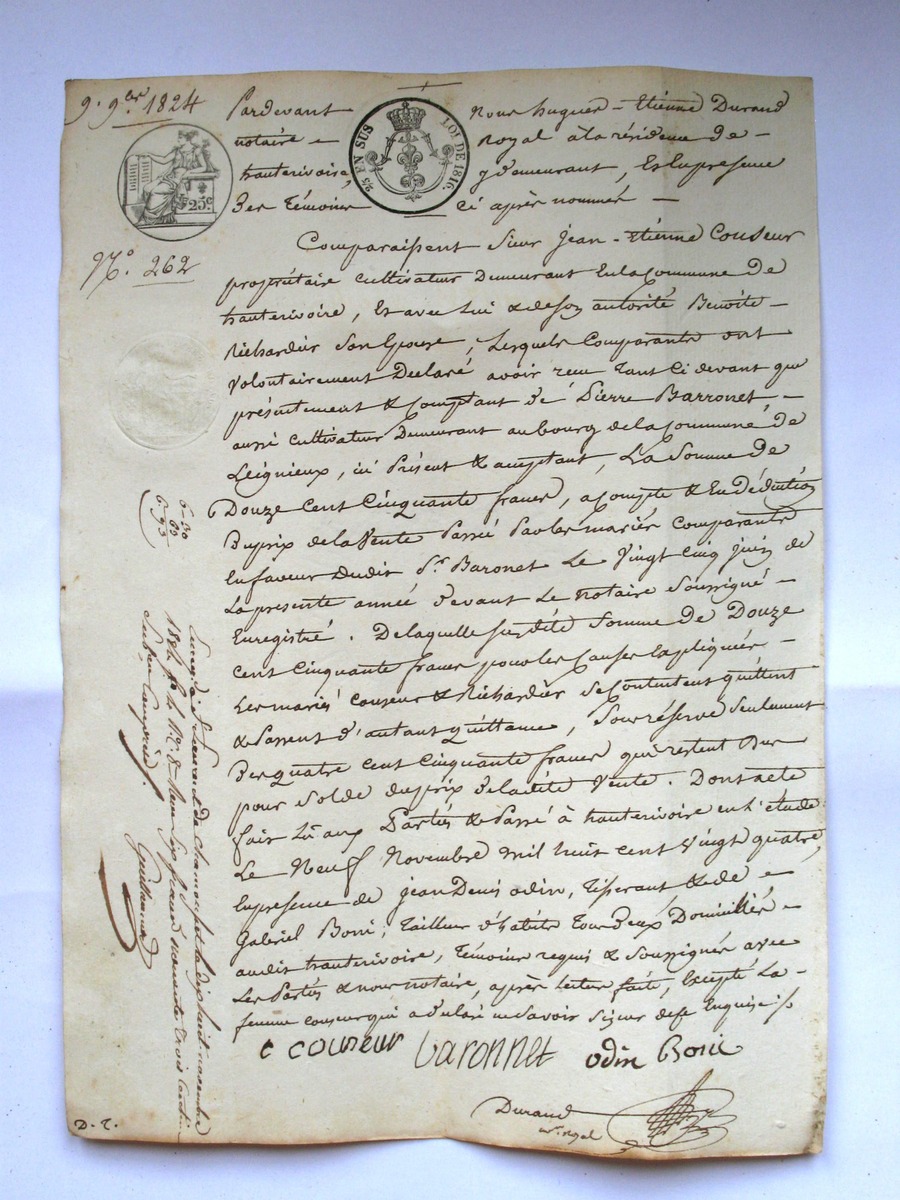 9. 9bre 1824
Pardevant Nous hugues-Etienne Durand
notaire Royal à la résidence de
hauterivoire, y demeurant, Et En presence
Des Témoins Ci après nommés
25 EN SUS LOI DE 1816.
25c
No. 262
Comparaissent Sieur Jean-Etienne Couseur
propriétaire Cultivateur Demeurant En la Commune de
hauterivoire, Et avec Lui & de son autorité Benoite
Richardier Son Epouse, Lesquels Comparants ont
Volontairement Déclaré avoir reçu tant Ci devant que
présentement & Comptant de Pierre Barronet,
aussi Cultivateur Demeurant au bourg de la Commune de
Leignieux, ici Présent & acceptant, La Somme de
Douze Cent Cinquante francs, a Compte & En Déduction
Du prix de la Vente Passée Par les mariés Comparants
En faveur Dudit Sr. Baronet Le Vingt Cinq juin de
La présente année devant Le Notaire Soussigné
Enregistré. De laquelle susdite Somme de Douze
Cent Cinquante francs pour les Causes Expliquées
Les mariés Couseur & Richardier Se Contentent quittent
& Passent d'autant quittance, Sous réserve Seulement
Des quatre Cent Cinquante francs qui restent Dus
pour Solde du prix de ladite Vente. Dont acte
fait Lu aux Parties & Passé à hauterivoire en l'étude
Le Neuf Novembre mil huit cent Vingt quatre,
En presence de jean Denis odin, Tisserant & de
Gabriel Boni, Tailleur d'habits Tous Deux Domiciliés
audit hauterivoire, Témoins requis & Soussignés avec
Les Parties & nous notaire, après lecture faite, Excepté La
femme couseur qui a déclaré ne Savoir Signer de ce Enquise
6-30
63
6-93
Enreg. à St Laurent de Chamousset le dix huit novembre
1824 fo. Reçu Six francs nonante trois centimes
Guillemard
e couseur baronnet odin Boni
Durand
nre. royal
D. T.